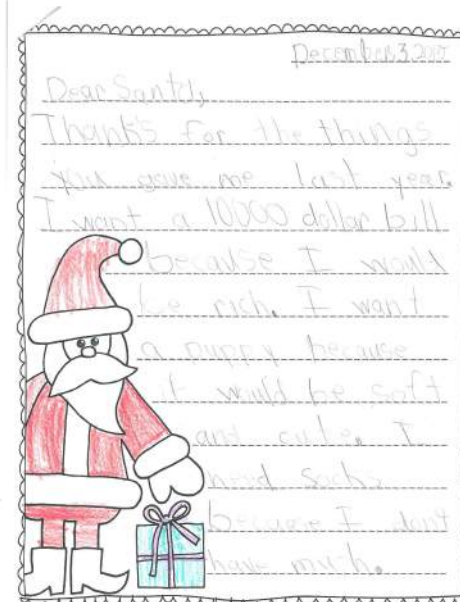 December 3 2015
Dear Santa,
Thanks for the things
you gave me last year.
I want a 10000 dollar bill
because I would
be rich. I want
a puppy because
it would be soft
and cute. I
need socks
because I don't
have much.